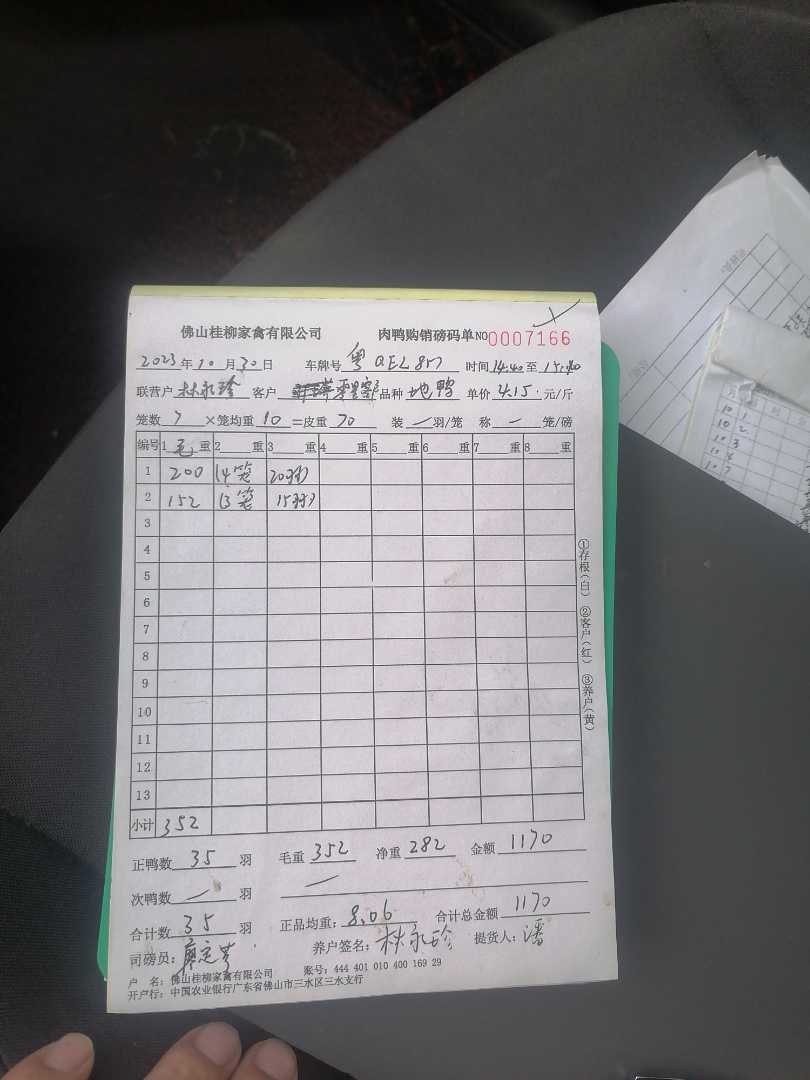 佛山桂柳家禽有限公司 肉鸭购销磅码单 NO 0007166
2023年10月30日 车牌号 粤 时间 14:40 至 15:40
联营户 林永珍 客户 品种 地鸭 单价 4.15 元/斤
笼数 7 ×笼均重 10 =皮重 70 装 一 羽/笼 称 一 笼/磅
编号 1 毛 重 2 重 3 重 4 重 5 重 6 重 7 重 8 重
1 200 4笼 20羽
2 152 3笼 15羽
3
4
5
6
7
8
9
10
11
12
13
小计 352
①存根(白) ②客户(红) ③养户(黄)
正鸭数 35 羽 毛重 352 净重 282 金额 1170
次鸭数 一 羽 一
合计数 35 羽 正品均重: 8.06 合计总金额 1170
司磅员: 养户签名: 林永珍 提货人: 潘
户 名: 佛山桂柳家禽有限公司 账号: 444 401 010 400 169 29
开户行: 中国农业银行广东省佛山市三水区三水支行